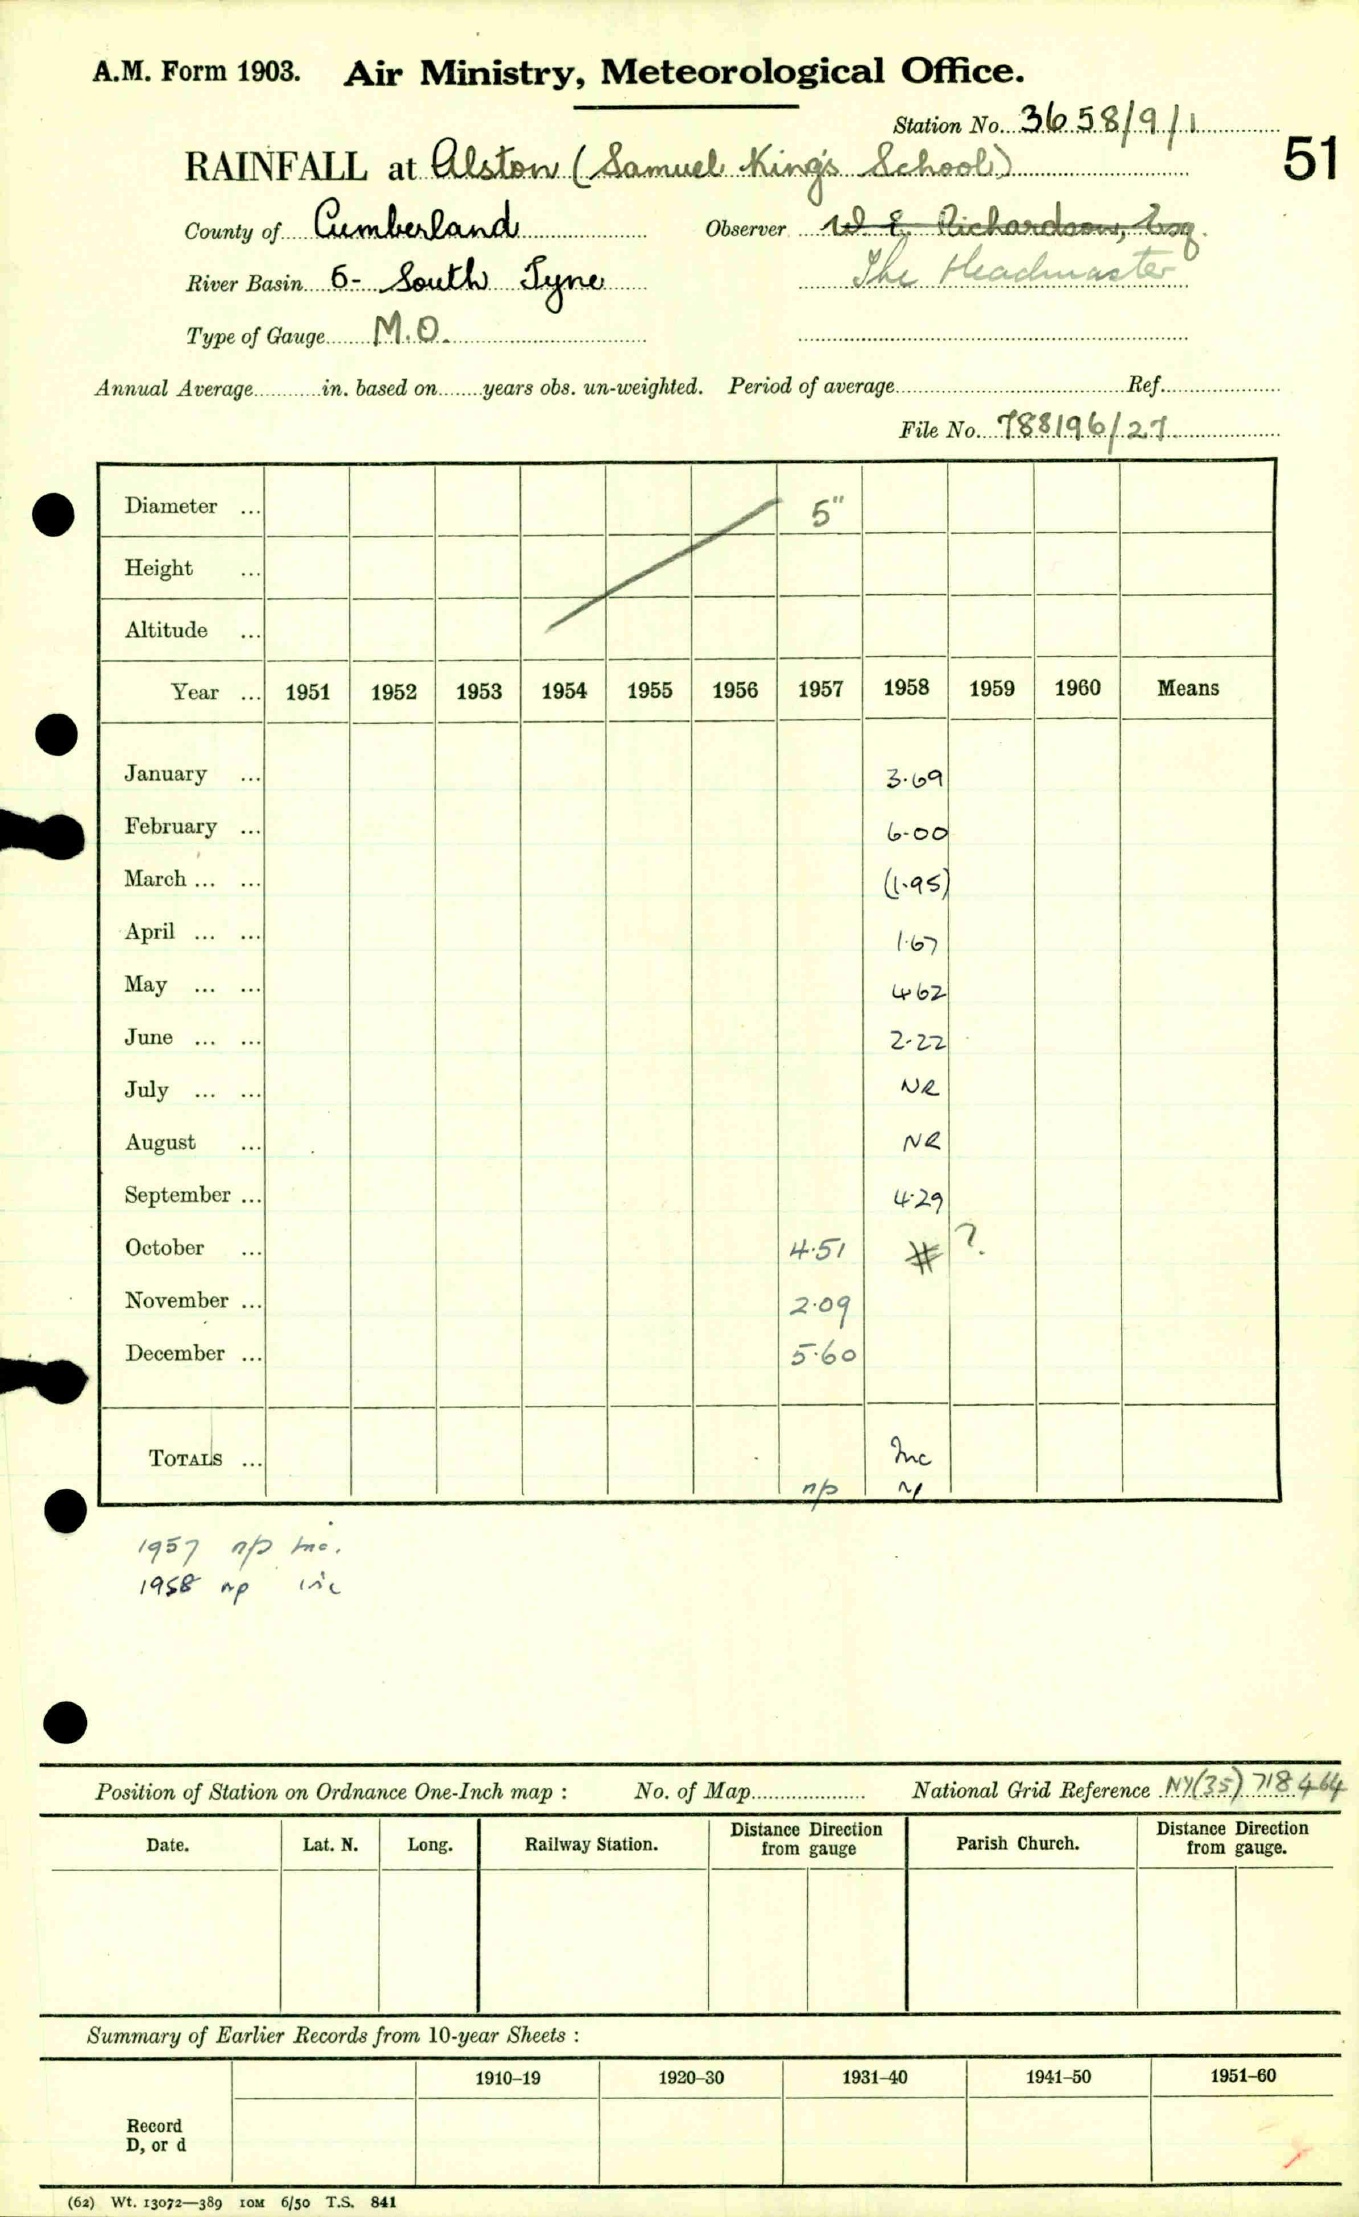 A.M. Form 1903. Air Ministry, Meteorological Office.
Station No. 3658/9/1
51
RAINFALL at Alston (Samuel King's School)
County of Cumberland Observer W. E. Richardson, Esq.
River Basin 6- South Tyne The Headmaster
Type of Gauge M.O.
Annual Average in. based on years obs. un-weighted. Period of average Ref.
File No. 788196/27
Diameter ... 5"
Height ...
Altitude ...
Year ... 1951 1952 1953 1954 1955 1956 1957 1958 1959 1960 Means
January ... 3.69
February ... 6.00
March ... ... (1.95)
April ... ... 1.67
May ... ... 4.62
June ... ... 2.22
July ... ... NR
August ... NR
September ... 4.29
October ... 4.51 # ?
November ... 2.09
December ... 5.60
TOTALS ... Inc
np np
1957 np inc.
1958 np inc
Position of Station on Ordnance One-Inch map : No. of Map National Grid Reference NY(35) 718464
Date. Lat. N. Long. Railway Station. Distance Direction from gauge Parish Church. Distance Direction from gauge.
Summary of Earlier Records from 10-year Sheets :
1910–19 1920–30 1931–40 1941–50 1951–60
Record
D, or d
(62) Wt. 13072—389 10M 6/50 T.S. 841